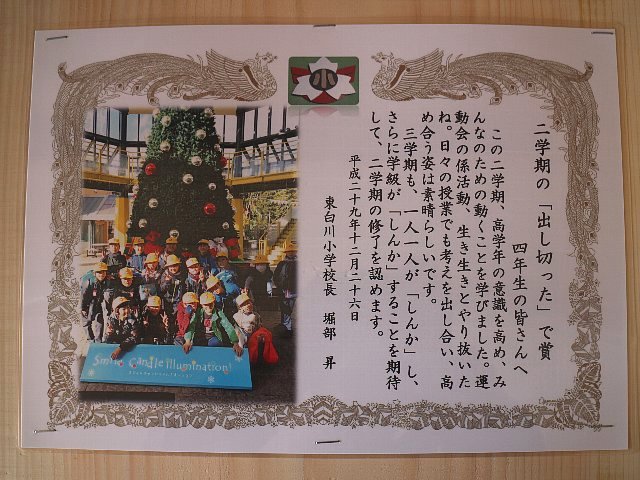 小
二学期の「出し切った」で賞
四年生の皆さんへ
この二学期、高学年の意識を高め、み
んなのための動くことを学びました。運
動会の係活動、生き生きとやり抜いた
ね。日々の授業でも考えを出し合い、高
め合う姿は素晴らしいです。
三学期も、一人一人が「しんか」し、
さらに学級が「しんか」することを期待
して、二学期の修了を認めます。
平成二十九年十二月二十六日
東白川小学校長　堀部　昇
Smile Candle illumination!